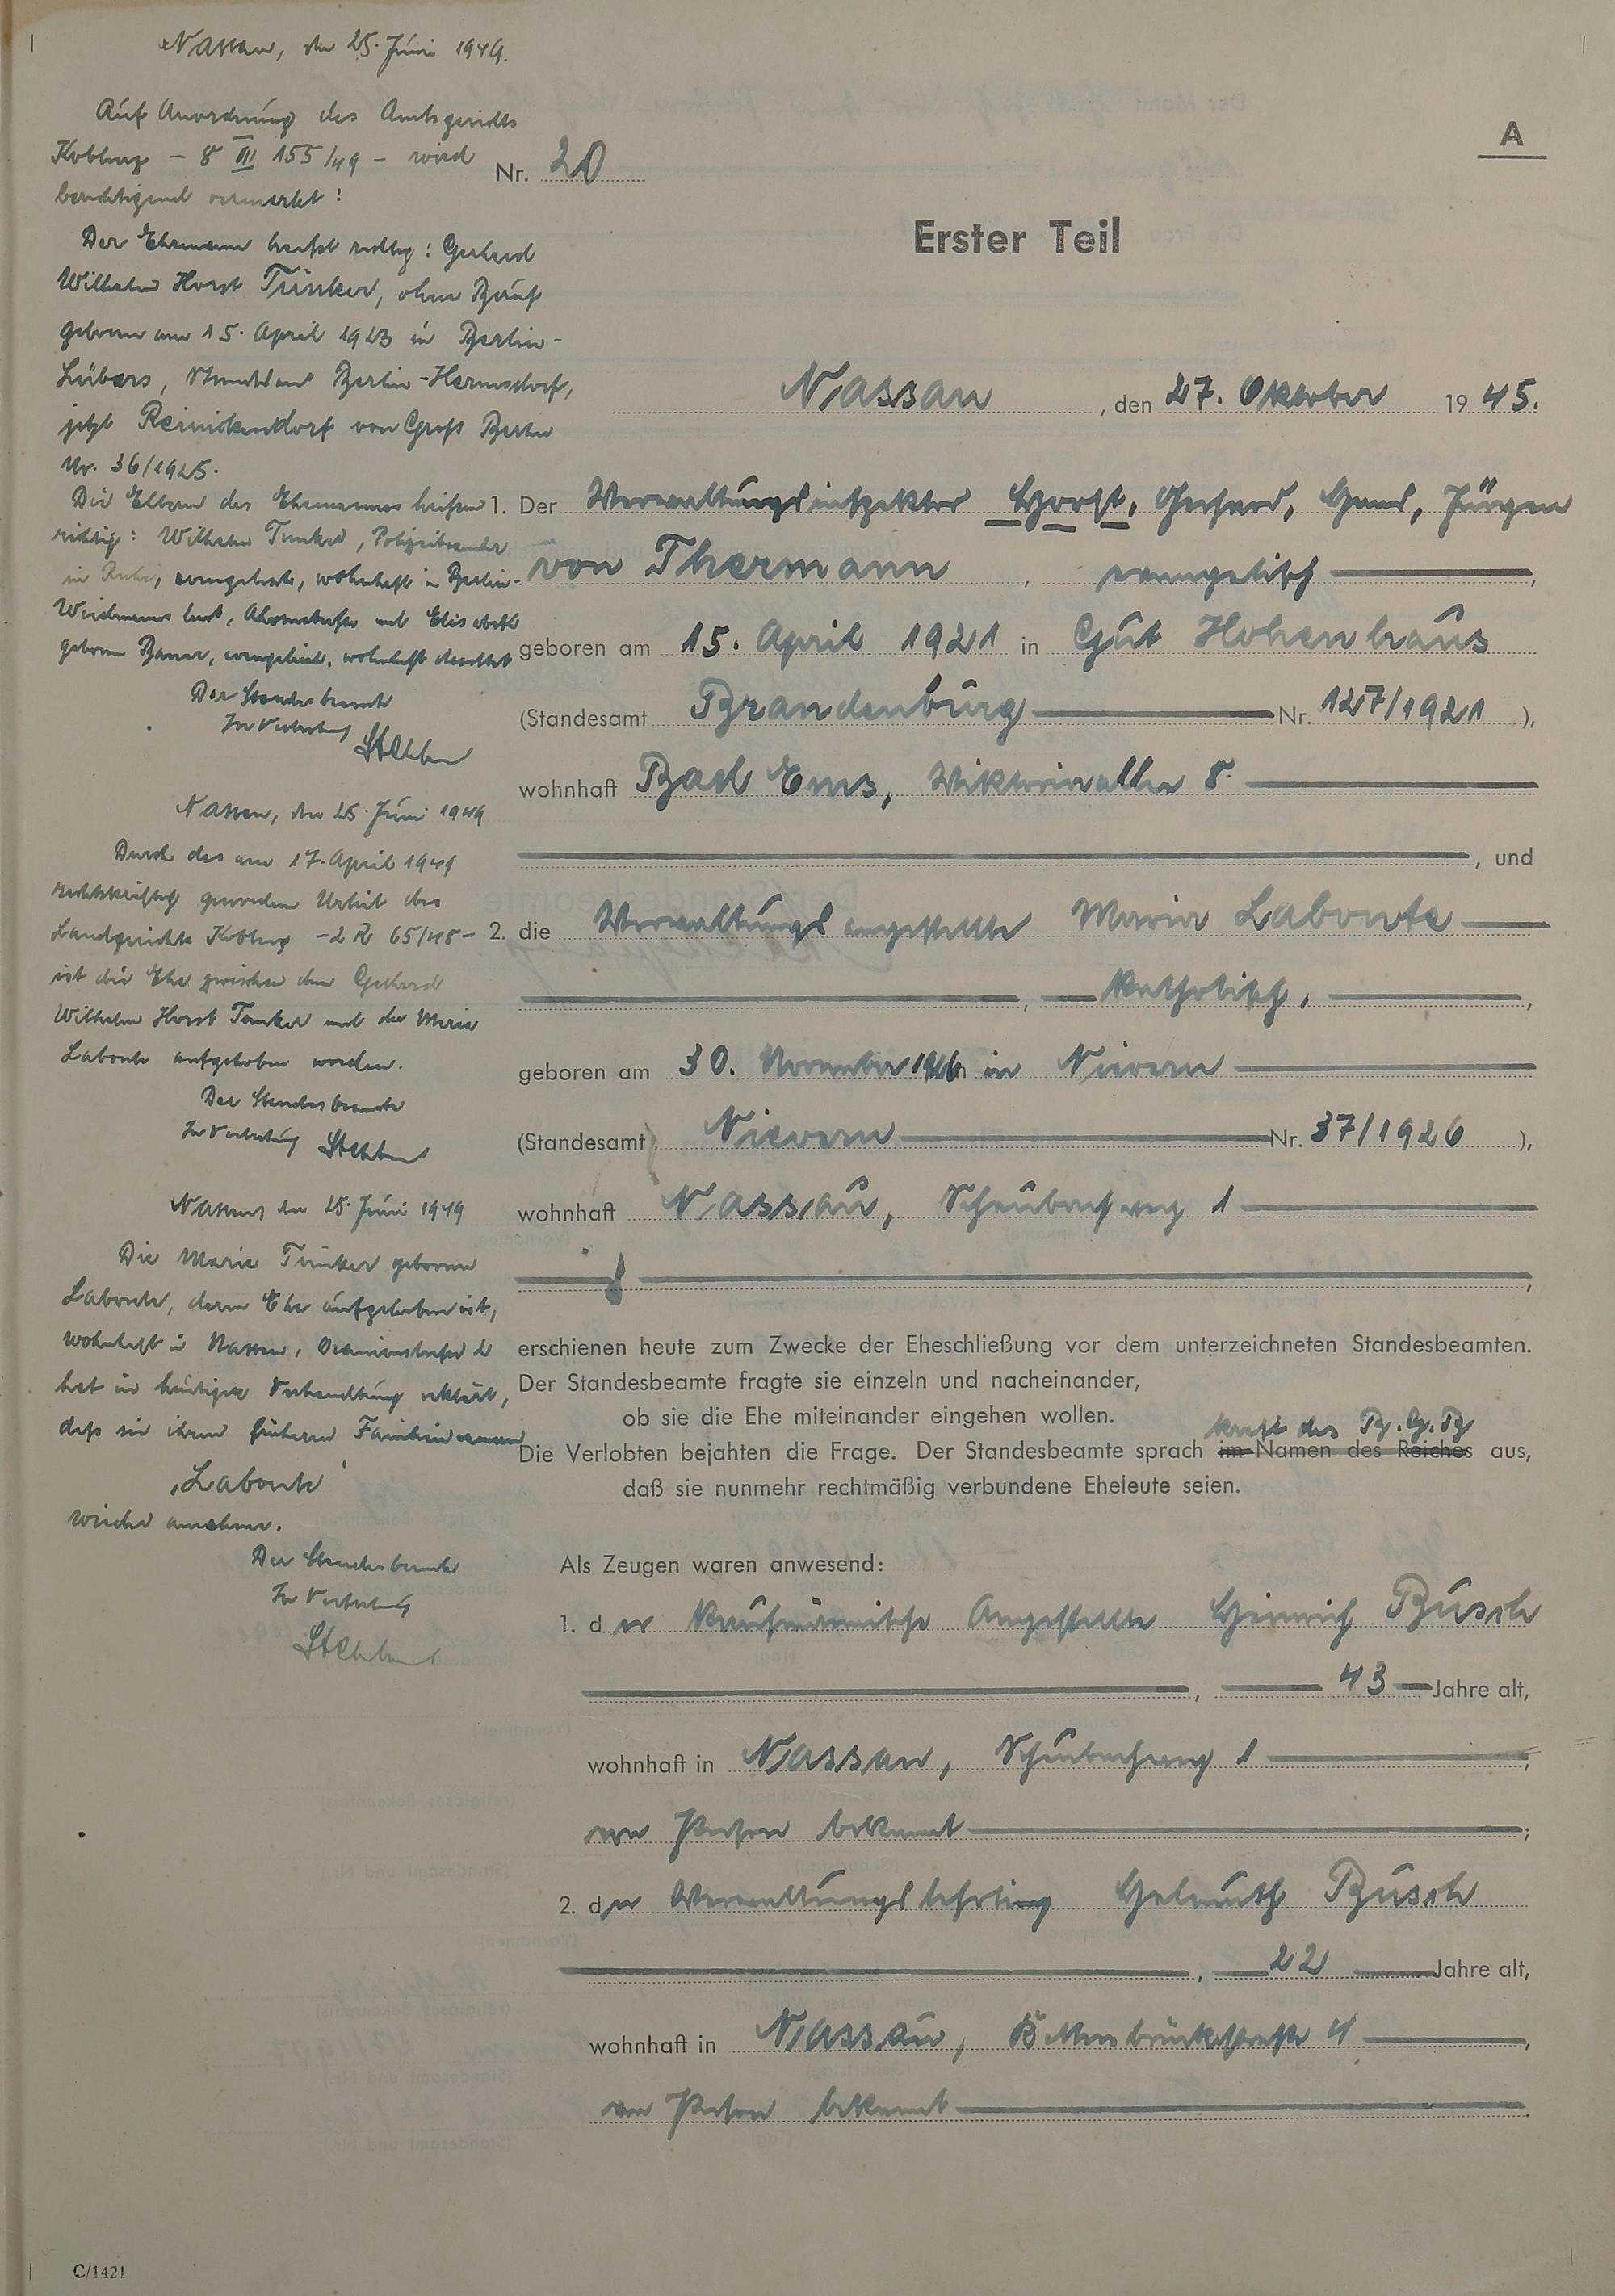 Nassau, den 25. Juni 1949.
Auf Anordnung des Amtsgerichts
Koblenz – 8 III 155/49 – wird
berichtigend vermerkt:
Der Ehemann heißt richtig: Gerhard
Wilhelm Horst Tünker, ohne Beruf
geboren am 15. April 1923 in Berlin-
Lübars, Standesamt Berlin-Hermsdorf,
jetzt Reinickendorf von Groß Berlin
Nr. 36/1925.
Die Eltern des Ehemannes heißen
richtig: Wilhelm Tünker, Polizeibeamter
in Ruhe, evangelisch, wohnhaft in Berlin-
Waidmannslust, und Elisabeth
geborene Bauer, evangelisch, wohnhaft daselbst
Der Standesbeamte
In Vertretung
Nassau, den 25. Juni 1949
Durch das am 17. April 1949
rechtskräftig gewordene Urteil des
Landgerichts Koblenz – 2 R 65/48 –
ist die Ehe zwischen dem Gerhard
Wilhelm Horst Tünker und der Maria
Labonte aufgehoben worden.
Der Standesbeamte
In Vertretung
Nassau, den 25. Juni 1949
Die Maria Tünker geborene
Labonte, deren Ehe aufgehoben ist,
wohnhaft in Nassau, Oranienstraße
hat in heutiger Verhandlung erklärt,
daß sie ihren früheren Familiennamen
„Labonte“
wieder annehme.
Der Standesbeamte
In Vertretung
A
Nr. 20
Erster Teil
Nassau, den 27. Oktober 1945.
1. Der Verwaltungsinspektor Horst, Gerhard, Hans, Jürgen
von Thermann, evangelisch,
geboren am 15. April 1921 in Gut Hohenhaus
(Standesamt Brandenburg Nr. 127/1921),
wohnhaft Bad Ems, Wiktoriaallee 8.
, und
2. die Verwaltungsangestellte Maria Labonte
, katholisch,
geboren am 30. November 1926 in Nievern
(Standesamt Nievern Nr. 37/1926),
wohnhaft Nassau, Scheubachweg 1
erschienen heute zum Zwecke der Eheschließung vor dem unterzeichneten Standesbeamten.
Der Standesbeamte fragte sie einzeln und nacheinander,
ob sie die Ehe miteinander eingehen wollen.
kraft des B.G.B
Die Verlobten bejahten die Frage. Der Standesbeamte sprach im Namen des Reiches aus,
daß sie nunmehr rechtmäßig verbundene Eheleute seien.
Als Zeugen waren anwesend:
1. der kaufmännische Angestellte Heinrich Büsch
, 43 Jahre alt,
wohnhaft in Nassau, Scheubachweg 1,
von Person bekannt;
2. der Verwaltungslehrling Helmuth Büsch
, 22 Jahre alt,
wohnhaft in Nassau, 4,
von Person bekannt.
C/1421